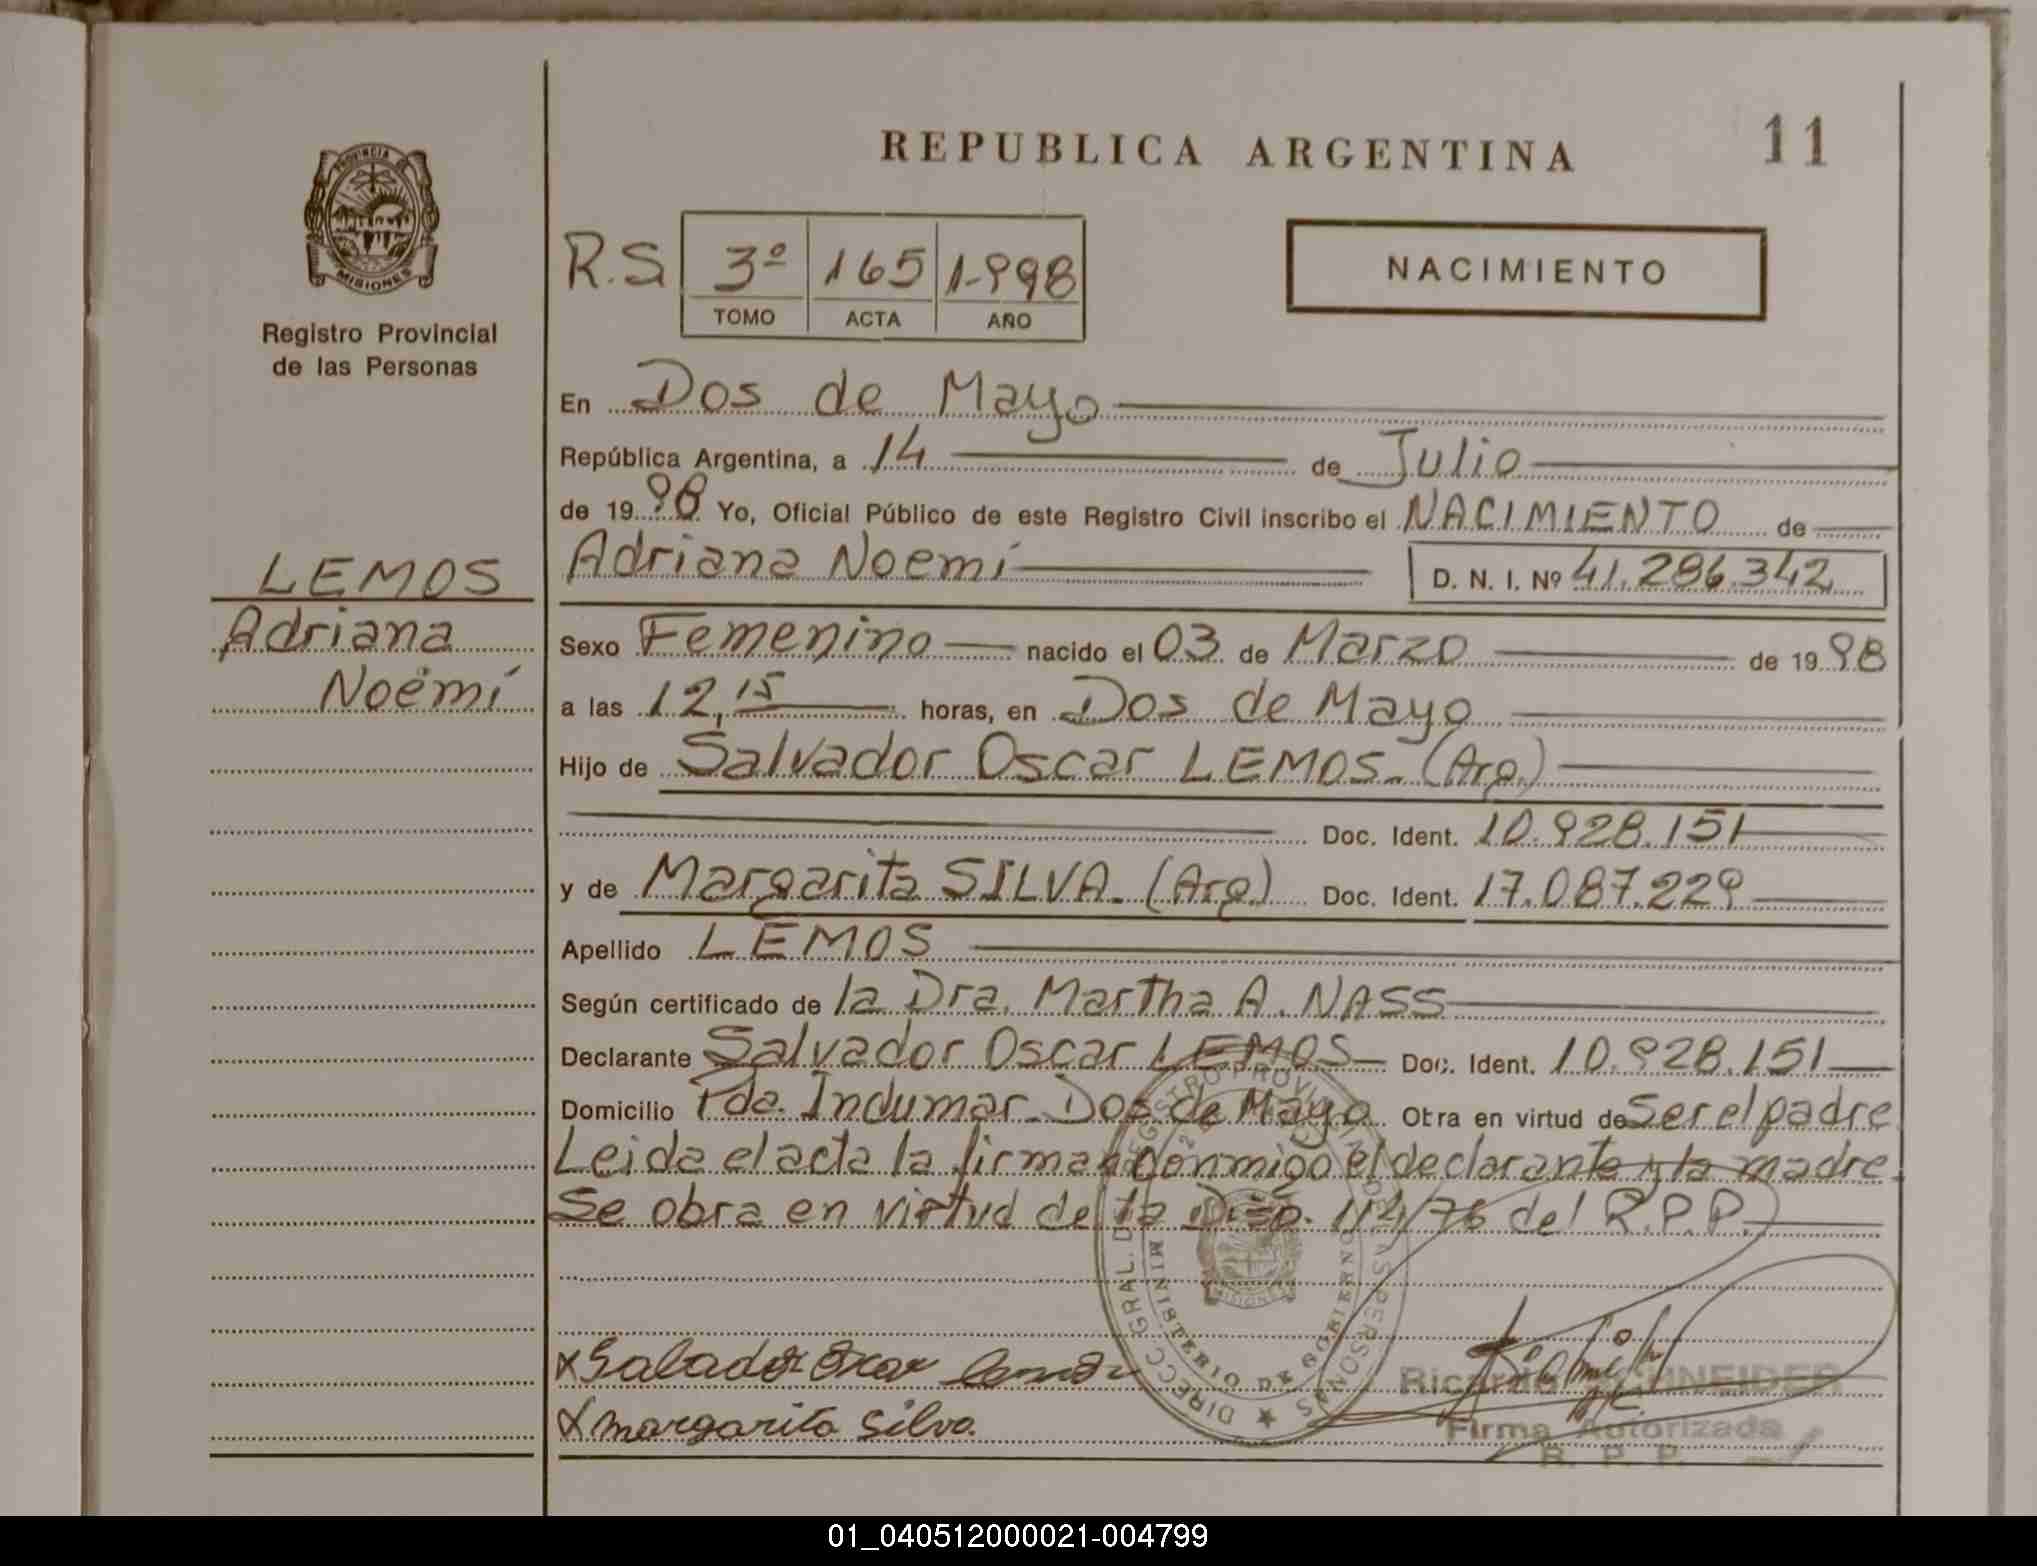 REPUBLICA ARGENTINA
11
PROVINCIA
MISIONES
Registro Provincial
de las Personas
R.S 3º 165 1.998
TOMO ACTA AÑO
NACIMIENTO
En Dos de Mayo
República Argentina, a 14 de Julio
de 1998 Yo, Oficial Público de este Registro Civil inscribo el NACIMIENTO de
Adriana Noemí D. N. I. Nº 41.286.342
LEMOS
Adriana
Noemí
Sexo Femenino nacido el 03 de Marzo de 1998
a las 12,15 horas, en Dos de Mayo
Hijo de Salvador Oscar LEMOS. (Arg.)
Doc. Ident. 10.928.151
y de Margarita SILVA. (Arg.) Doc. Ident. 17.087.229
Apellido LEMOS
Según certificado de la Dra. Martha A. NASS
Declarante Salvador Oscar LEMOS Doc. Ident. 10.928.151
Domicilio Pda. Indumar - Dos de Mayo Otra en virtud de Ser el padre
Leida el acta la firman conmigo el declarante y la madre.
Se obra en virtud de la Disp. 114/76 del R.P.P.
DIRECC. GRAL. DEL REGISTRO PROVINCIAL DE LAS PERSONAS
MINISTERIO DE GOBIERNO
MISIONES
x Salbador Oscar lemos
x margarita Silva.
Ricardo SCHNEIDER
Firma Autorizada
R. P. P.
01_040512000021-004799